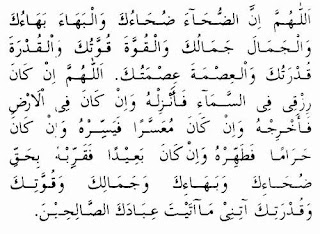 اَللّٰهُمَّ اِنَّ الضُّحَآءَ ضُحَاءُكَ. وَالْبَهَاءَ بَهَاءُكَ
وَالْجَمَالَ جَمَالُكَ وَالْقُوَّةَ قُوَّتُكَ وَالْقُدْرَةَ
قُدْرَتُكَ وَالْعِصْمَةَ عِصْمَتُكَ. اَللّٰهُمَّ اِنْ كَانَ
رِزْقِى فِى السَّمَآءِ فَأَنْزِلْهُ وَاِنْ كَانَ فِى اْلاَرْضِ
فَأَخْرِجْهُ وَاِنْ كَانَ مُعَسَّرًا فَيَسِّرْهُ وَاِنْ كَانَ
حَرَامًا فَطَهِّرْهُ وَاِنْ كَانَ بَعِيْدًا فَقَرِّبْهُ بِحَقِّ
ضُحَاءِكَ وَبَهَاءِكَ وَجَمَالِكَ وَقُوَّتِكَ
وَقُدْرَتِكَ آتِنِىْ مَاآتَيْتَ عِبَادَكَ الصَّالِحِيْنَ.